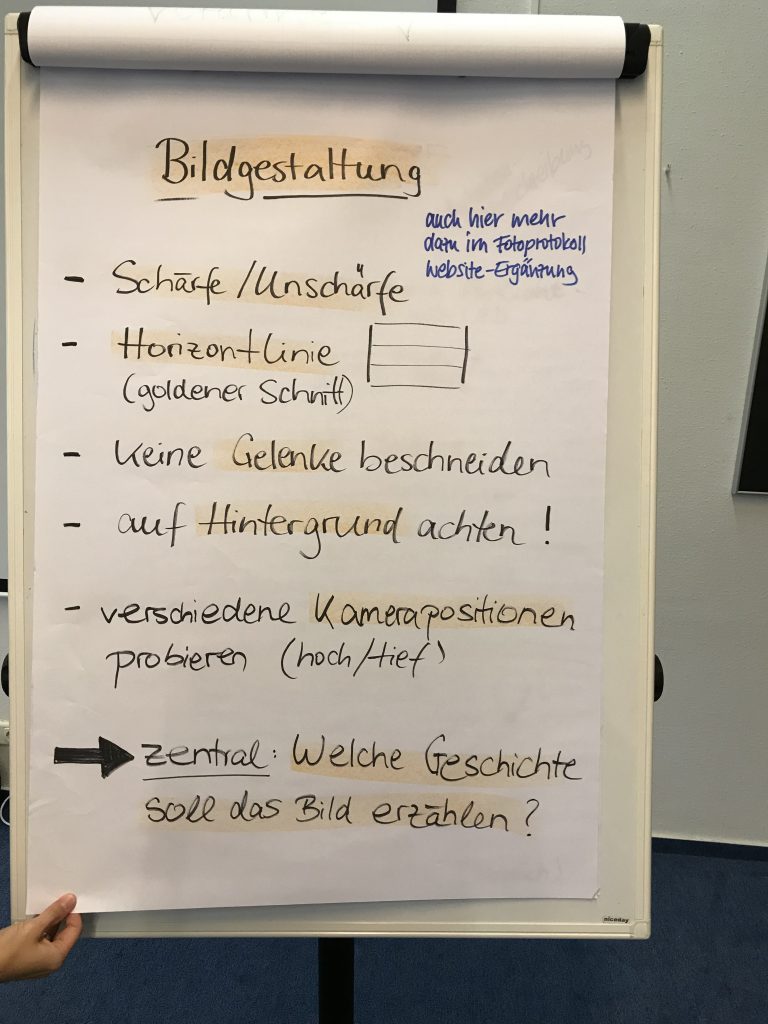 Bildgestaltung
auch hier mehr
dazu im Fotoprotokoll
Website-Ergänzung
- Schärfe/Unschärfe
- Horizontlinie
(goldener Schnitt)
- keine Gelenke beschneiden
- auf Hintergrund achten!
- verschiedene Kamerapositionen
probieren (hoch/tief)
zentral: Welche Geschichte
soll das Bild erzählen?
niceday